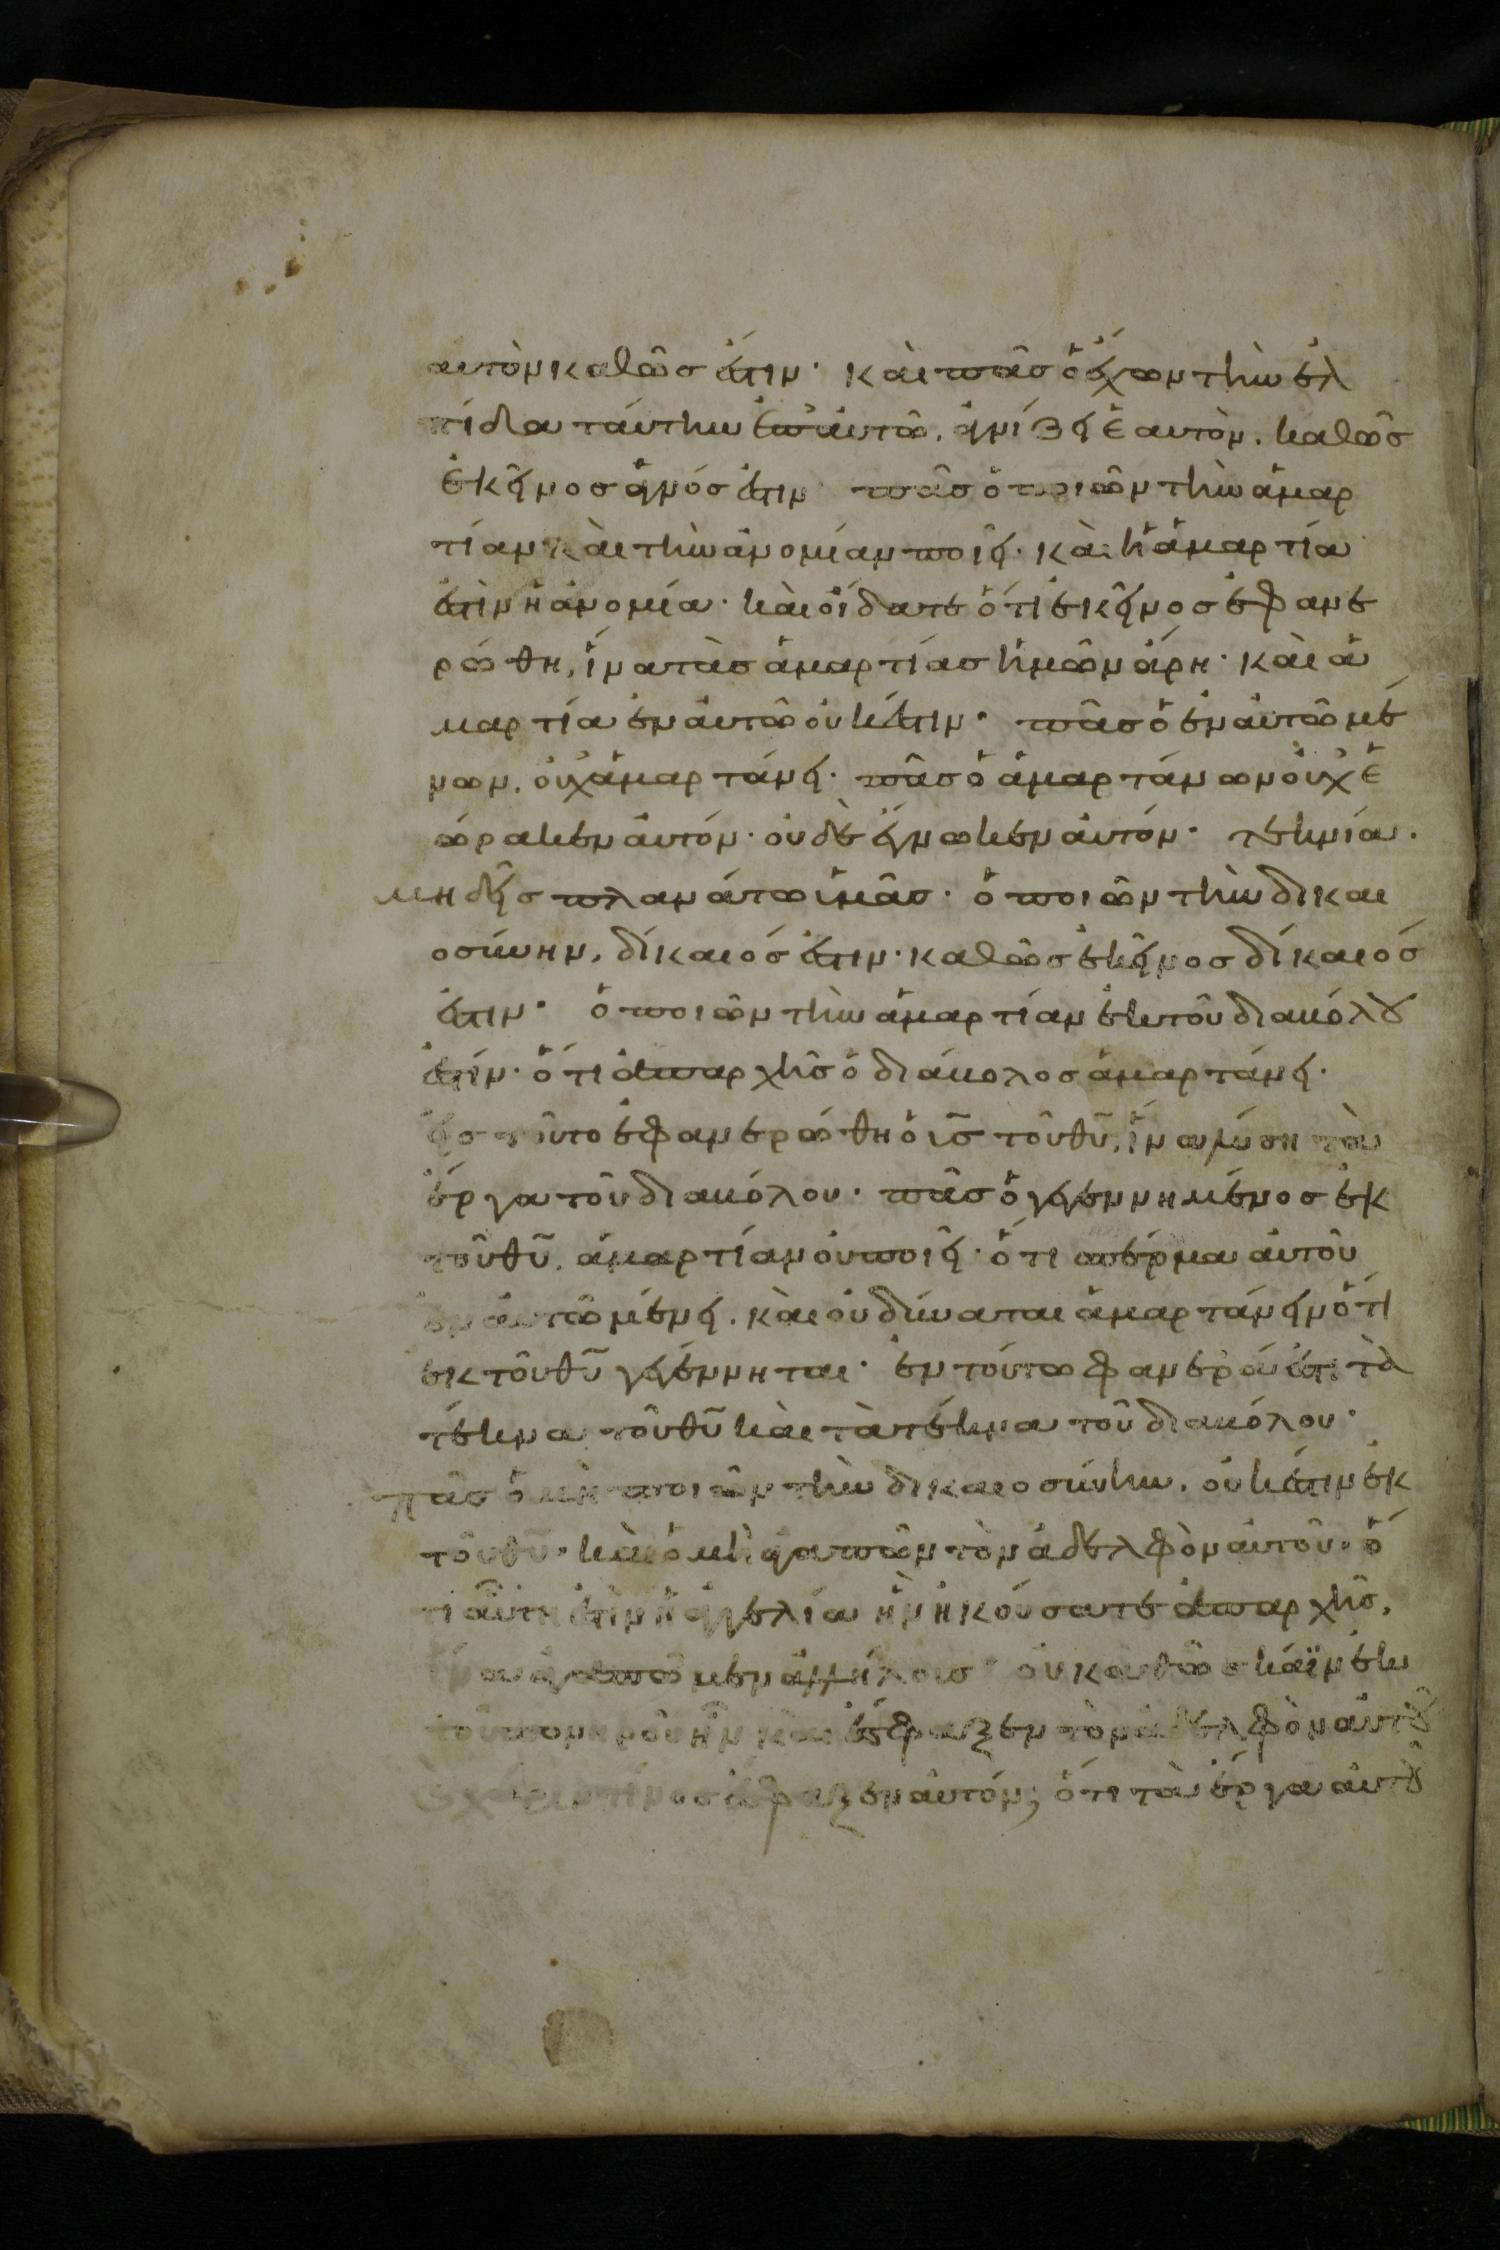 αυτὸν καθὼς ἐστιν· καὶ πᾶσ ὁ ἔχων τὴν ἐλ
πίδα ταύτην ἐπ αὐτῶ, ἁγνίζει ἑαυτὸν, καθὼσ
ἐκεῖνοσ ἁγνόσ ἐστιν πᾶσ ὁ ποιῶν τὴν ἁμαρ
τίαν καὶ τὴν ἀνομίαν ποιεῖ· καὶ ἡ ἁμαρτία
ἐστὶν ἡ ἀνομία· καὶ οἴδατε ὅτι ἐκεῖνοσ ἐφανε
ρώθη, ἵνα τὰσ ἁμαρτίασ ἡμῶν ἄρη· καὶ ἁ
μαρτία ἐν αὐτῶ οὐκ ἔστιν· πᾶσ ὁ ἐν αὐτῶ μέ
νων, οὐχ ἁμαρτάνει· πᾶσ ὁ ἁμαρτάνων οὐχ ἑ
ώρακεν αὐτόν· οὐδὲ ἔγνωκεν αὐτόν· τεκνία.
μηδεὶσ πλανάτω ὑμᾶσ· ὁ ποιῶν τὴν δικαι
οσύνην, δίκαιόσ ἐστιν· καθὼσ ἐκεῖνοσ δίκαιόσ
ἐστιν· ὁ ποιῶν τὴν ἁμαρτίαν ἐκ τοῦ διαβόλου
ἐστίν· ὅτι ἀπαρχῆσ ὁ διάβολοσ ἁμαρτάνει·
εἰσ τοῦτο ἐφανερώθη ὁ ισ τοῦ θυ, ἵνα λύση τὰ
ἔργα τοῦ διαβόλου· πᾶσ ὁ γεγεννημένοσ ἐκ
τοῦ θυ, ἁμαρτίαν οὐ ποιεῖ· ὅτι σπέρμα αὐτοῦ
ἐν αὐτῶ μένει, καὶ οὐ δύναται ἁμαρτάνειν ὅτι
ἐκ τοῦ θυ γεγέννηται· ἐν τούτω φανερά ἐστι τὰ
τέκνα τοῦ θυ καὶ τὰ τέκνα τοῦ διαβόλου·
πᾶσ ὁ μὴ ποιῶν τὴν δικαιοσύνην, οὐκ ἔστιν ἐκ
τοῦ θυ· καὶ ὁ μὴ ἀγαπῶν τὸν ἀδελφὸν αὐτοῦ· ὅ
τι αὕτη ἐστὶν ἡ ἀγγελία ἣν ἠκούσατε ἀπαρχῆσ,
ἵνα ἀγαπῶμεν ἀλλήλουσ· οὐ καθὼσ κάϊν ἐκ
τοῦ πονηροῦ ἦν καὶ ἔσφαξεν τὸν ἀδελφὸν αὐτοῦ
τίνοσ ἔσφαξεν αὐτόν; ὅτι τὰ ἔργα αὐτοῦ